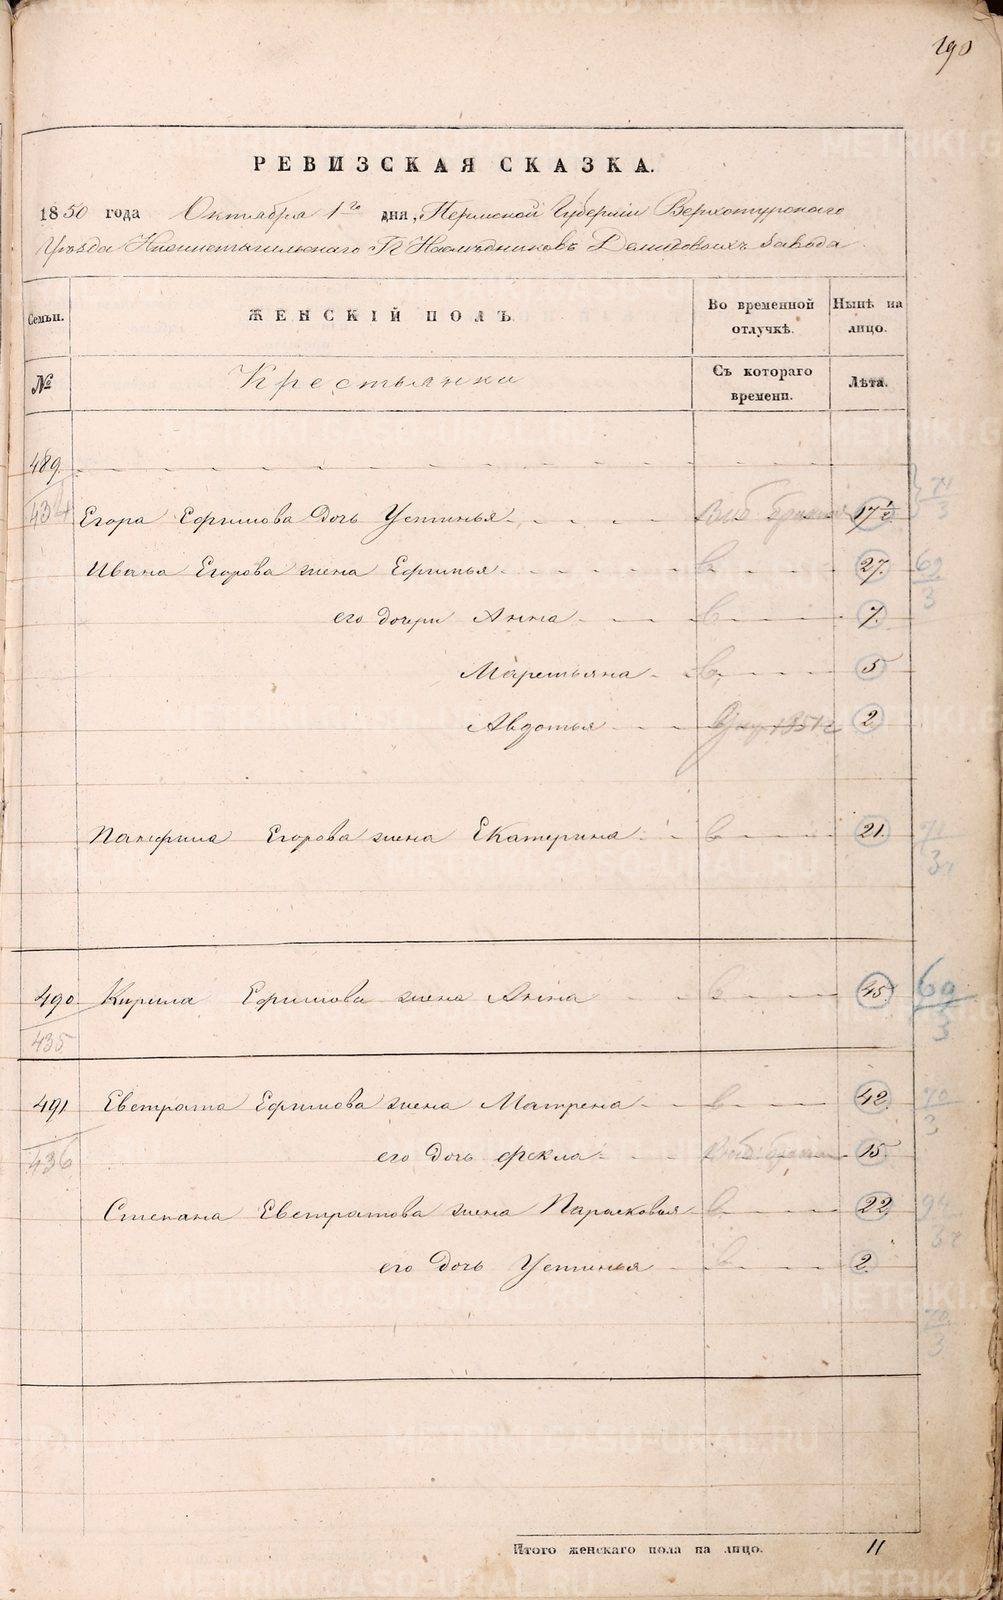 190
РЕВИЗСКАЯ СКАЗКА.
1850 года Октября 1го дня, Пермской Губернии Верхотурского
Уѣзда Нижнетагильского Гг Наслѣдниковъ Демидовыхъ Завода
Семьи. ЖЕНСКІЙ ПОЛЪ Во временной отлучкѣ. Нынѣ на лицо.
№ Крестьянки Съ котораго времени. Лѣта.
489.
434 Егора Ефимова Дочь Устинья 17½ 71/3
Ивана Егорова жена Ефимья в 27. 69/3
его дочери Анна в 7.
Маремьяна в 5
Авдотья 1851 г 2
Панфила Егорова жена Екатерина в 21. 71/3
490 Кирила Ефимова жена Анна в 45. 69/3
435
491 Евстрата Ефимова жена Матрена в 42. 70/3
436 его Дочь Фекла 15
Степана Евстратова жена Парасковья в 22 94/3
его Дочь Устинья в 2.
70/3
Итого женскаго пола на лицо. 11
METRIKI.GASO-URAL.RU